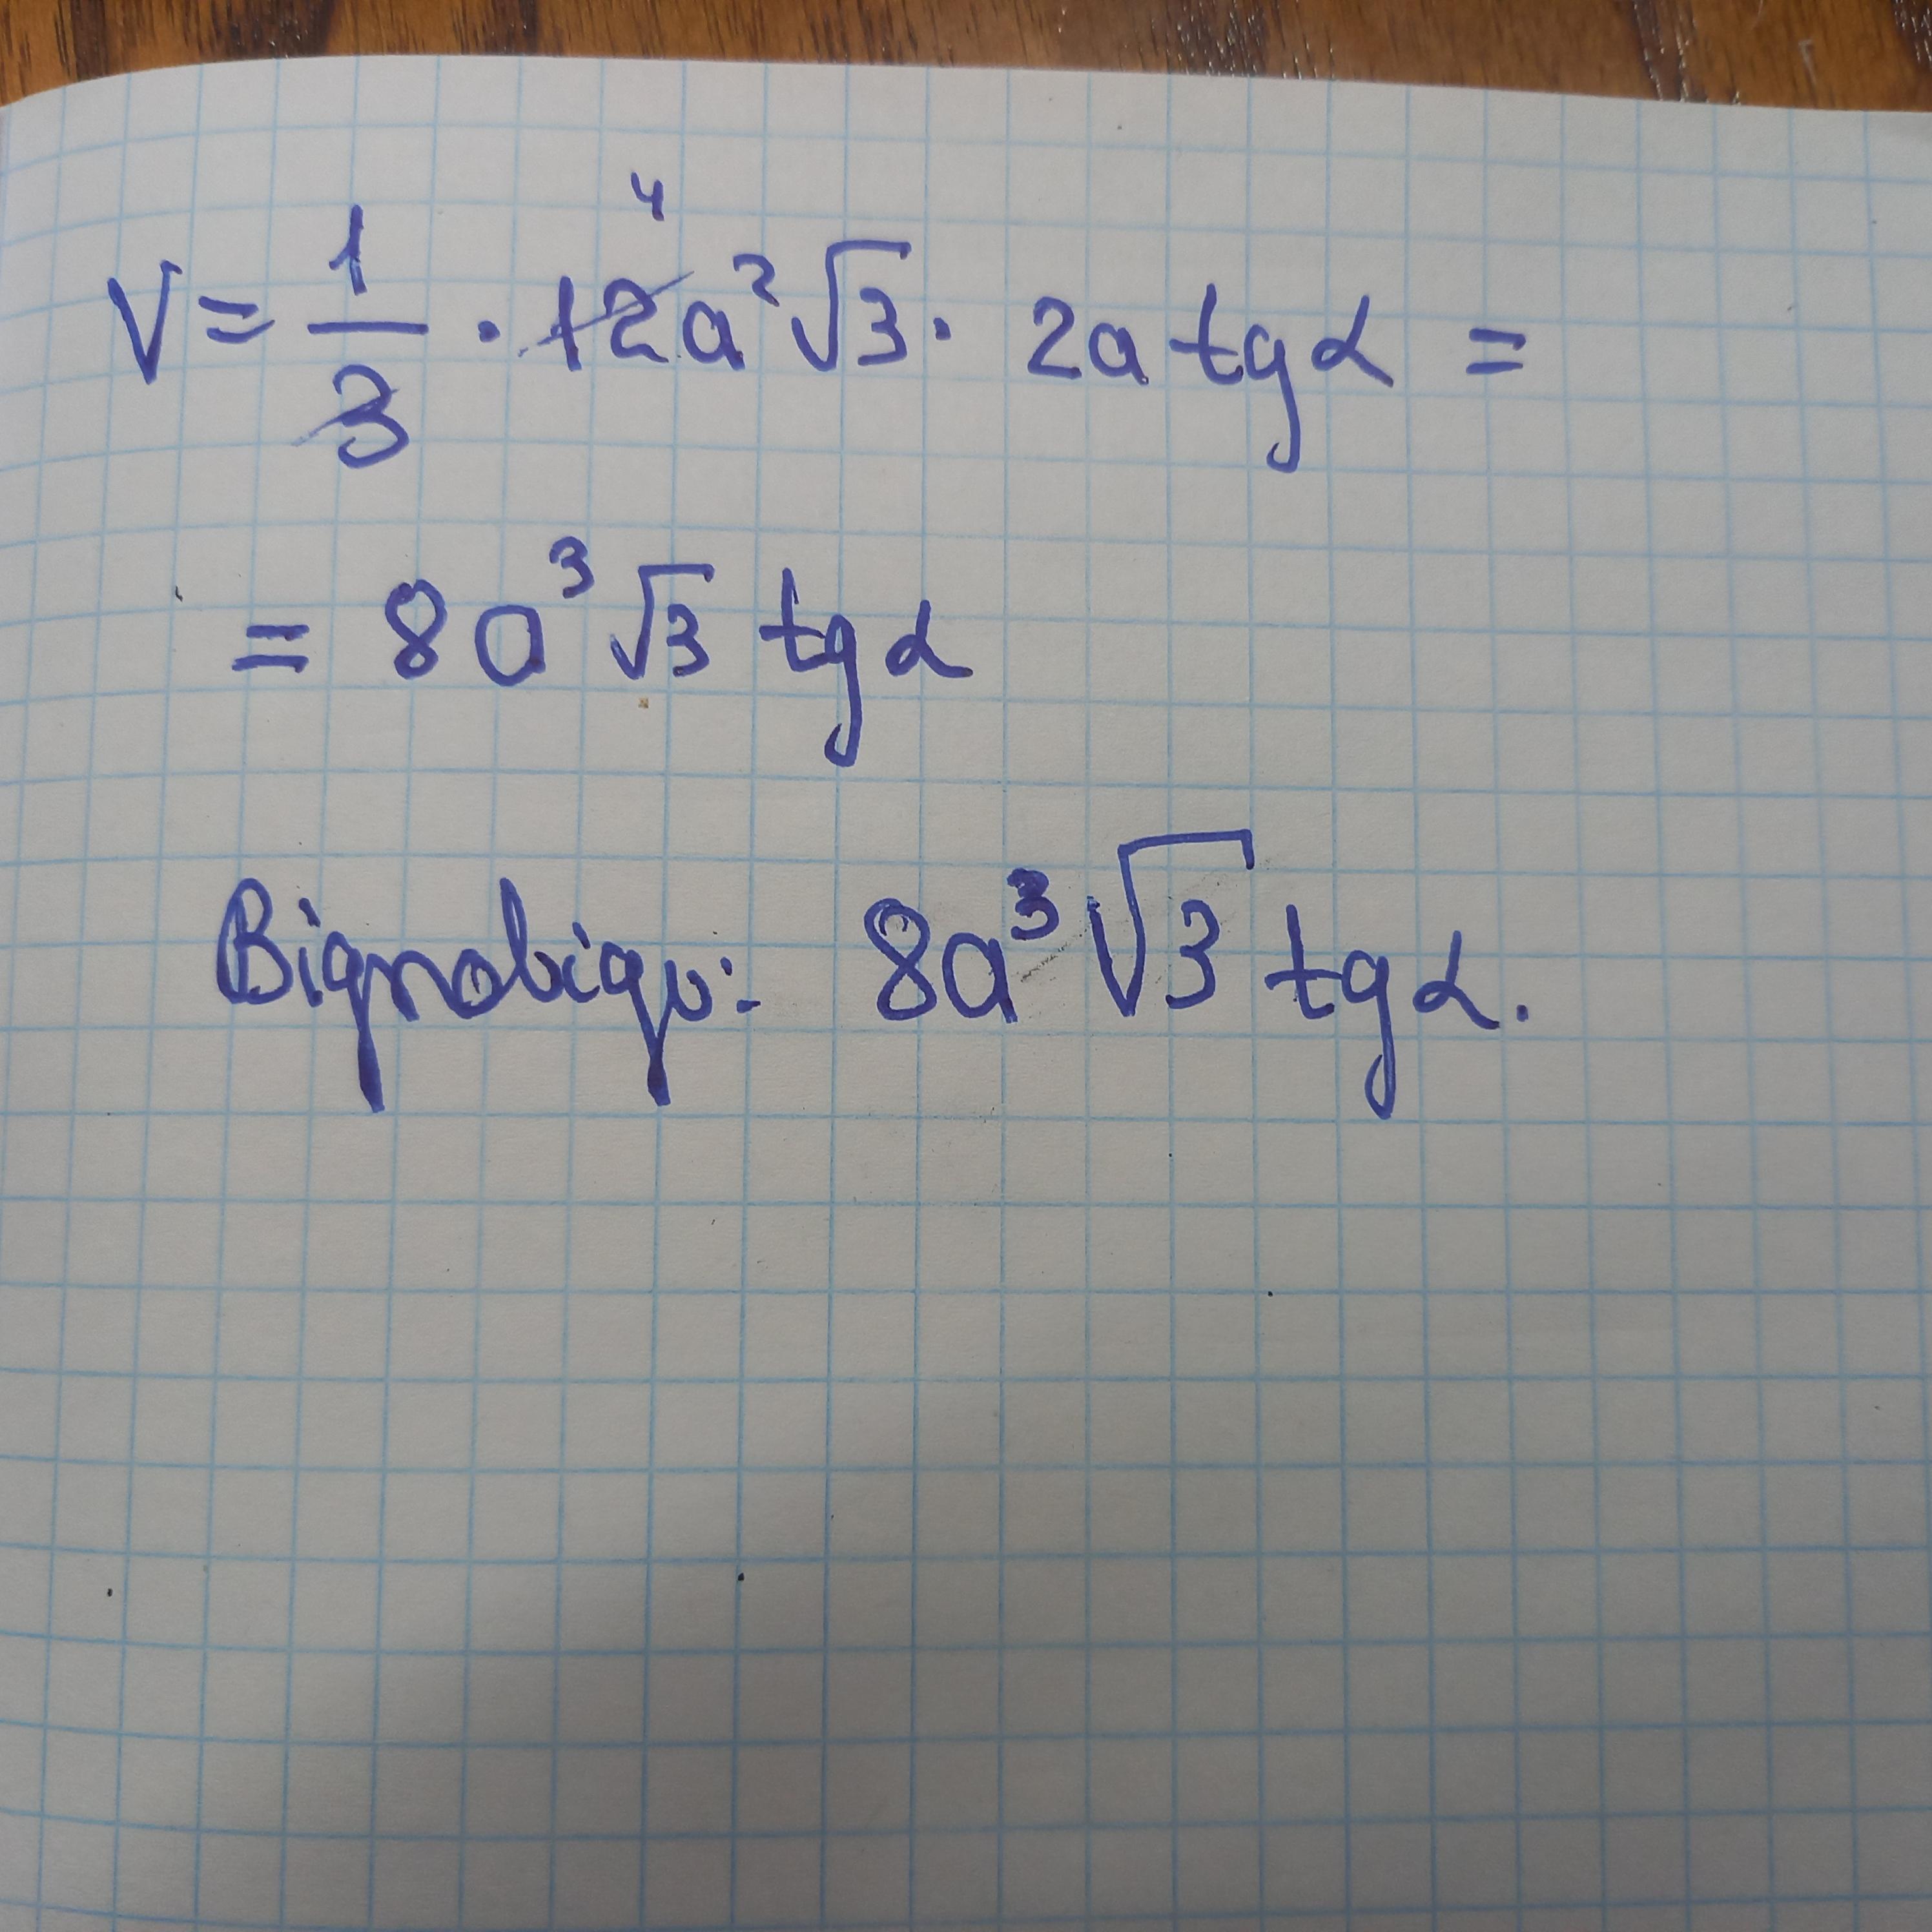 V = 1/3 · 12a²√3 · 2a tg α =
4
= 8a³√3 tg α
Відповідь: 8a³√3 tg α.